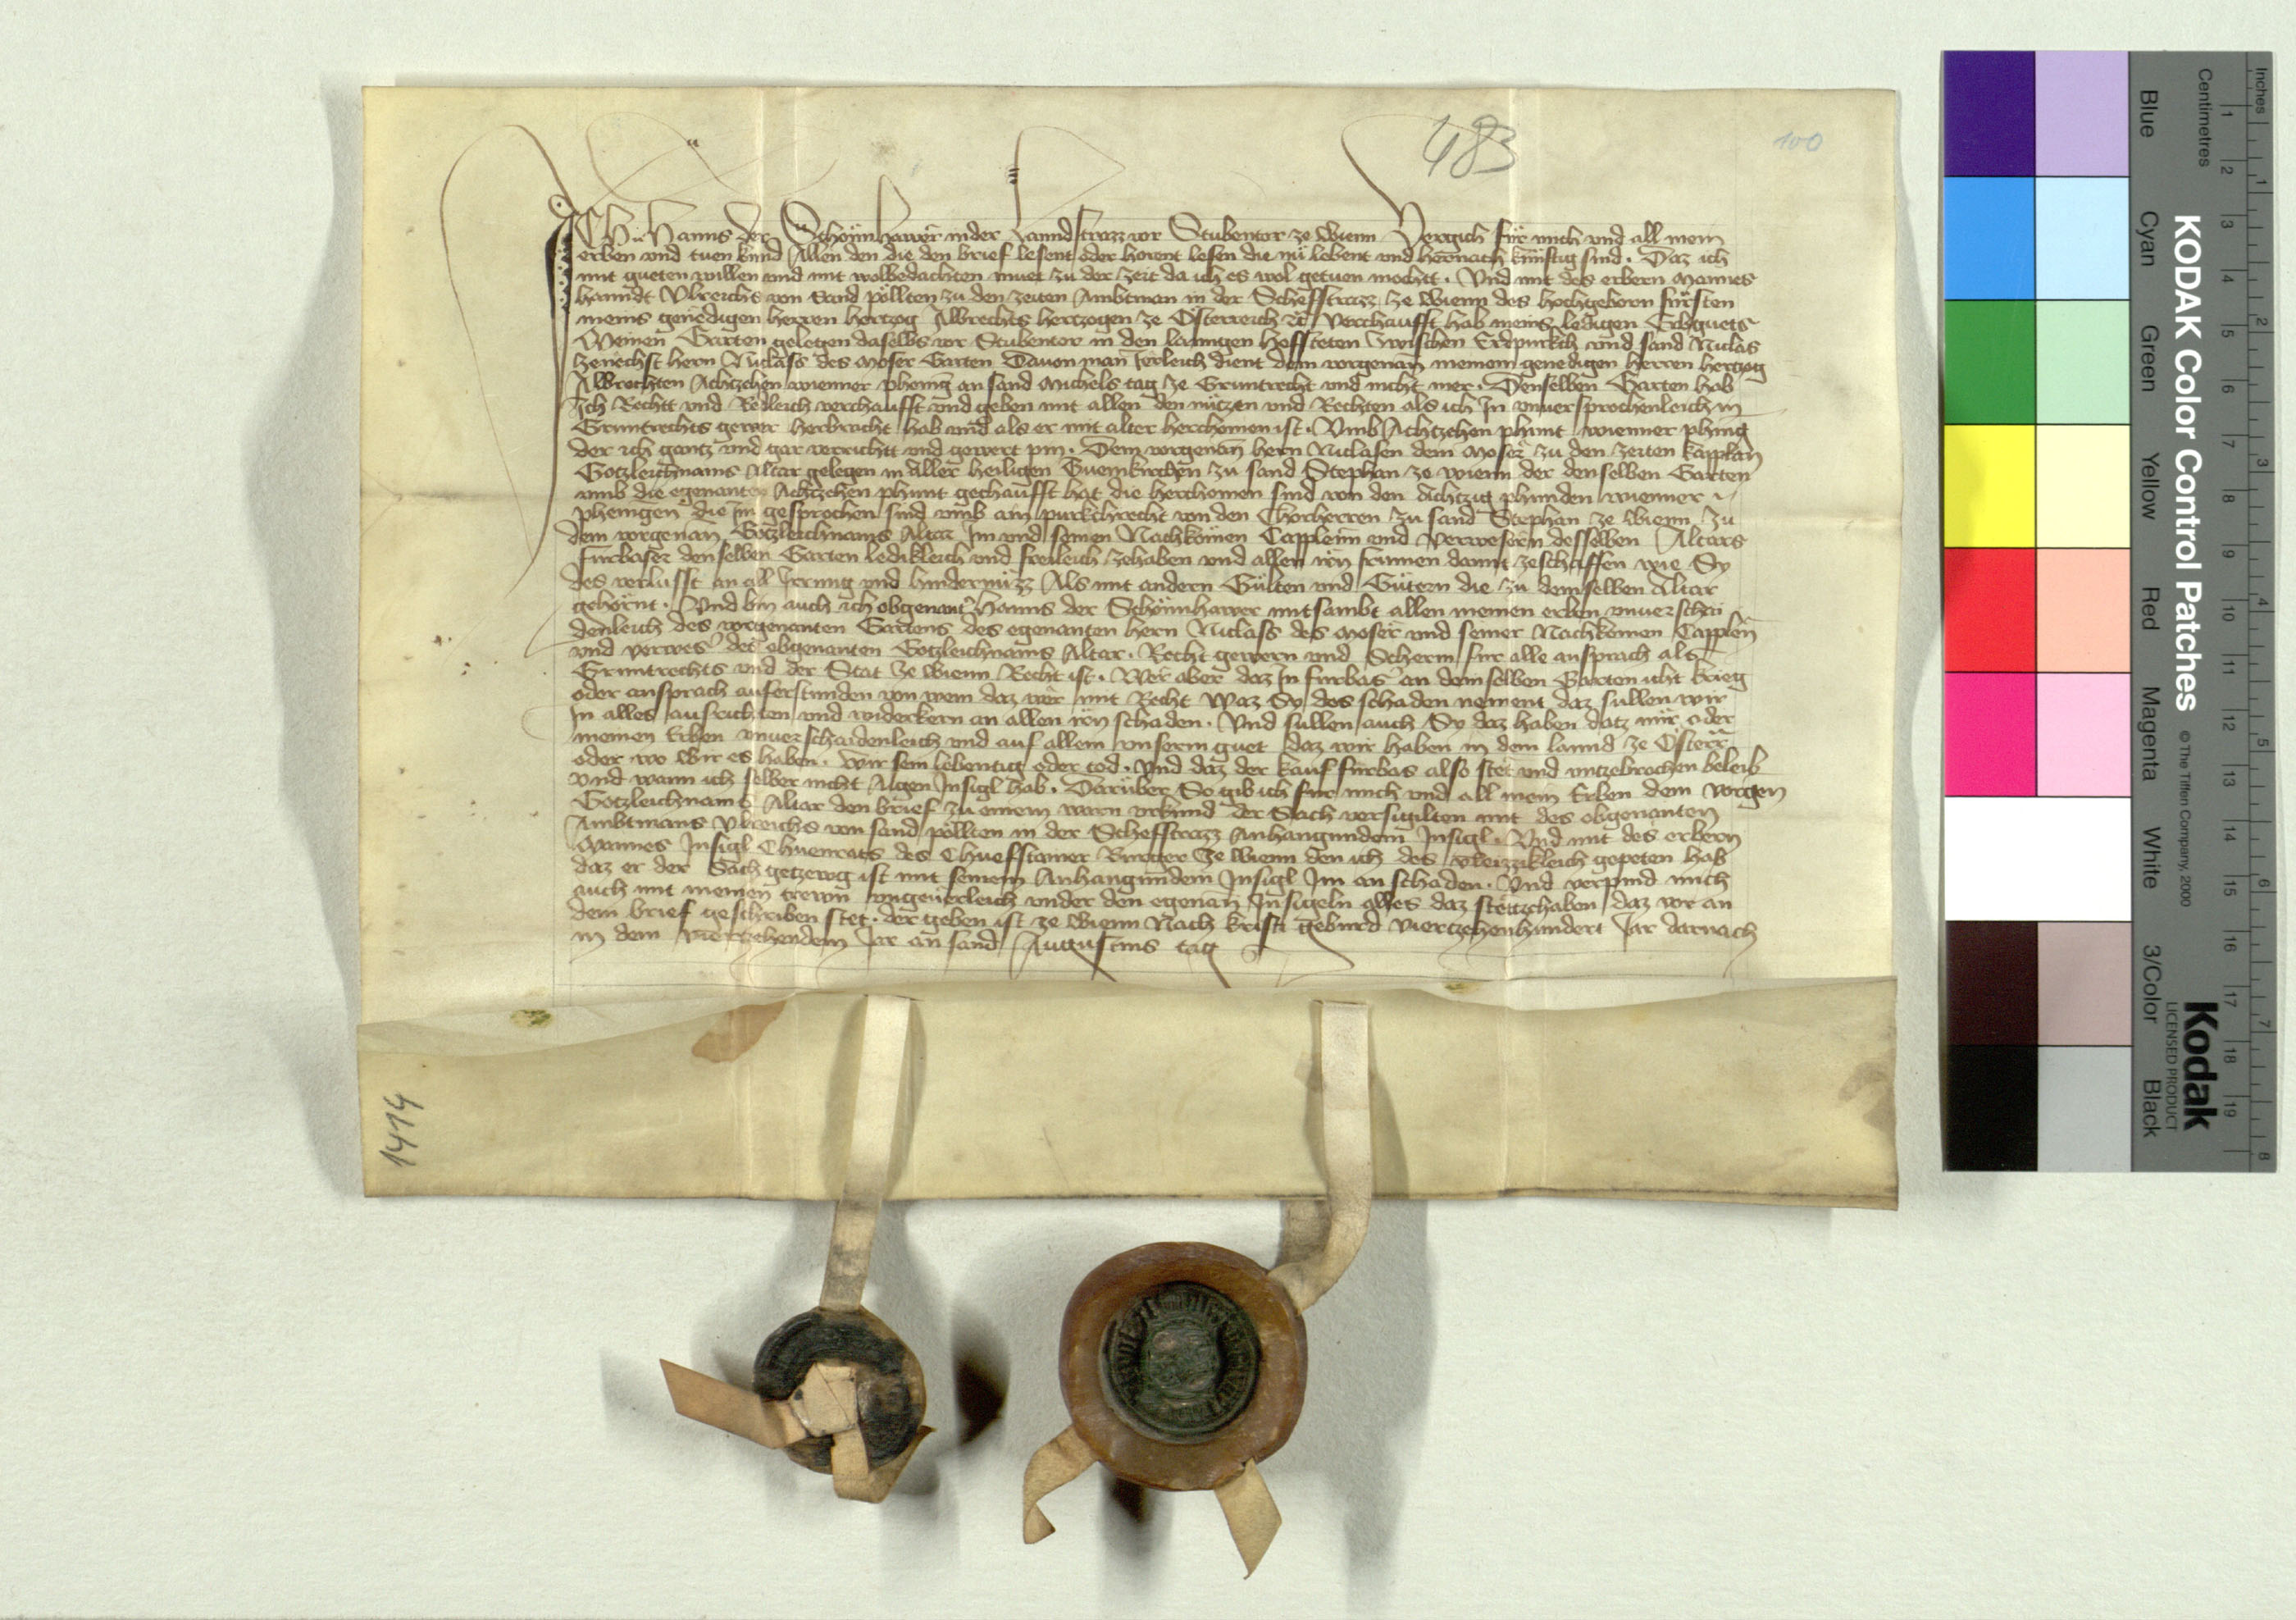 483
100
ICH Hanns der Schönnhawer in der Lanndstrazz vor Stubentor ze wienn Vergich für mich vnd all mein
erben vnd tuen kund Allen den die den brief lesent oder hörent lesen die nu lebent vnd hernach künftig sind. Daz ich
mit gueten willen vnd mit wolbedachten muet zu der zeit da ich es wol getuen mocht. Vnd mit des erbern Mannes
hanndt Vlreichs von Sand pöllten zu den zeiten Ambtman in der Scheffstrazz ze wienn des hochgeborn fürsten
meins genedigen herren hertzog Albrechts hertzogen ze Österreich etc verchaufft hab meins ledigen
Meinen Garten gelegen daselbs vor Stubentor in den lanngen zwischen Erdpurkch vnd sand Niclas
zenechst hern Niclass des Moser Garten Dauon man Jerleich dient dem vorgenan meinem genedigen herren hertzog
Albrechten Achtzehen wienner phening an sand Michels tag ze Gruntrecht vnd nicht mer. Denselben Garten hab
Ich Rechtt vnd Redleich verchaufft vnd geben mit allen den nützen vnd Rechten als ich In vnuersprochenleich in
Gruntrechts gewer herbracht hab vnd als er mit alter herchomen ist. Vmb Achtzehen phunt wienner phing
der ich gantz vnd gar verrichtt vnd gewert pin. Dem vorgenan hern Niclasen dem Moser zu den zeiten kapplan
Gotzleichnams Altar gelegen in Aller heiligen Tuemkirchen zu sand Stephan ze wienn der denselben Garten
vmb die egenanten Achtzehen phunt gechaufft hat die herchomen sind von den Achtzig phunden wienner
phenigen die Im gesprochen sind vmb ain purkchrecht von den Chorherren zu sand Stephan ze wienn zu
dem vorgenan Gotzleichnams Altar Im vnd seinen Nachkömen Capplenn vnd verwesern desselben Altars
fürbaser denselben Garten ledikleich vnd freileich zehaben vnd allen irn frumen damit zeschaffen wie Sy
des verlusst an all Irrung vnd hindernüzz Als mit andern Gülten vnd Gütern die zu demselben Altar
gehörnt. Vnd bin auch ich obgenant Hanns der Schönnhawer mitsambt allen meinen erben vnuerschai
denleich des vorgenanten Gartens des egenanten hern Niclass des Moser vnd seiner Nachkomen Capplen
vnd verwes des obgenanten Gotzleichnams Altar. Recht gewern vnd Scherm für alle ansprach als
Gruntrechts vnd der Stat ze wienn Recht ist. Wer aber daz In fürbas an demselben Garten icht krieg
oder ansprach auferstunden von wem daz wer mit Recht Waz Sy des schaden nement daz sullen wir
In alles ausrichten vnd widerkern an allen irn schaden. Vnd sullen auch Sy daz haben datz mir oder
meinen Erben vnuerschaidenleich vnd auf allem vnserm guet daz wir haben in dem lannd ze Österr
oder wo wir es haben. wir sein lebentig oder tod. Vnd daz der kauf fürbas also stet vnd vntzebrochen beleib
Vnd wann ich selber nicht Aigen Insigl hab. Darüber So gib ich für mich vnd all mein Erben dem vorgen
Gotzleichnams Altar den brief zu einem warn vrkund der Sach versigilten mit des obgenanten
Ambtmans Vlreichs von sand pöllten in der Scheffstrazz Anhangundem Insigl. Vnd mit des erbern
Mannes Insigl Chuenrats des Chuefstainer Burger Ze wienn den ich des vleizzikleich gepeten hab
daz er der Sach getzewg ist mit seinem Anhangundem Insigl Im an schaden. Vnd verpind mich
auch mit meinen trewn vngeuerleich vnder den egenan Insigeln alles daz stettzehaben daz vor an
dem brief geschriben stet. der geben ist ze wienn Nach kristi gebürd vierzehenhundert Jar darnach
in dem vierzehendem Jar an sand Augustins tag
1414
KODAK Color Control Patches
© The Tiffen Company, 2000
Kodak
LICENSED PRODUCT
Inches
Centimetres
Blue
Cyan
Green
Yellow
Red
Magenta
White
3/Color
Black
1 2 3 4 5 6 7 8 9 10 11 12 13 14 15 16 17 18 19
1 2 3 4 5 6 7 8